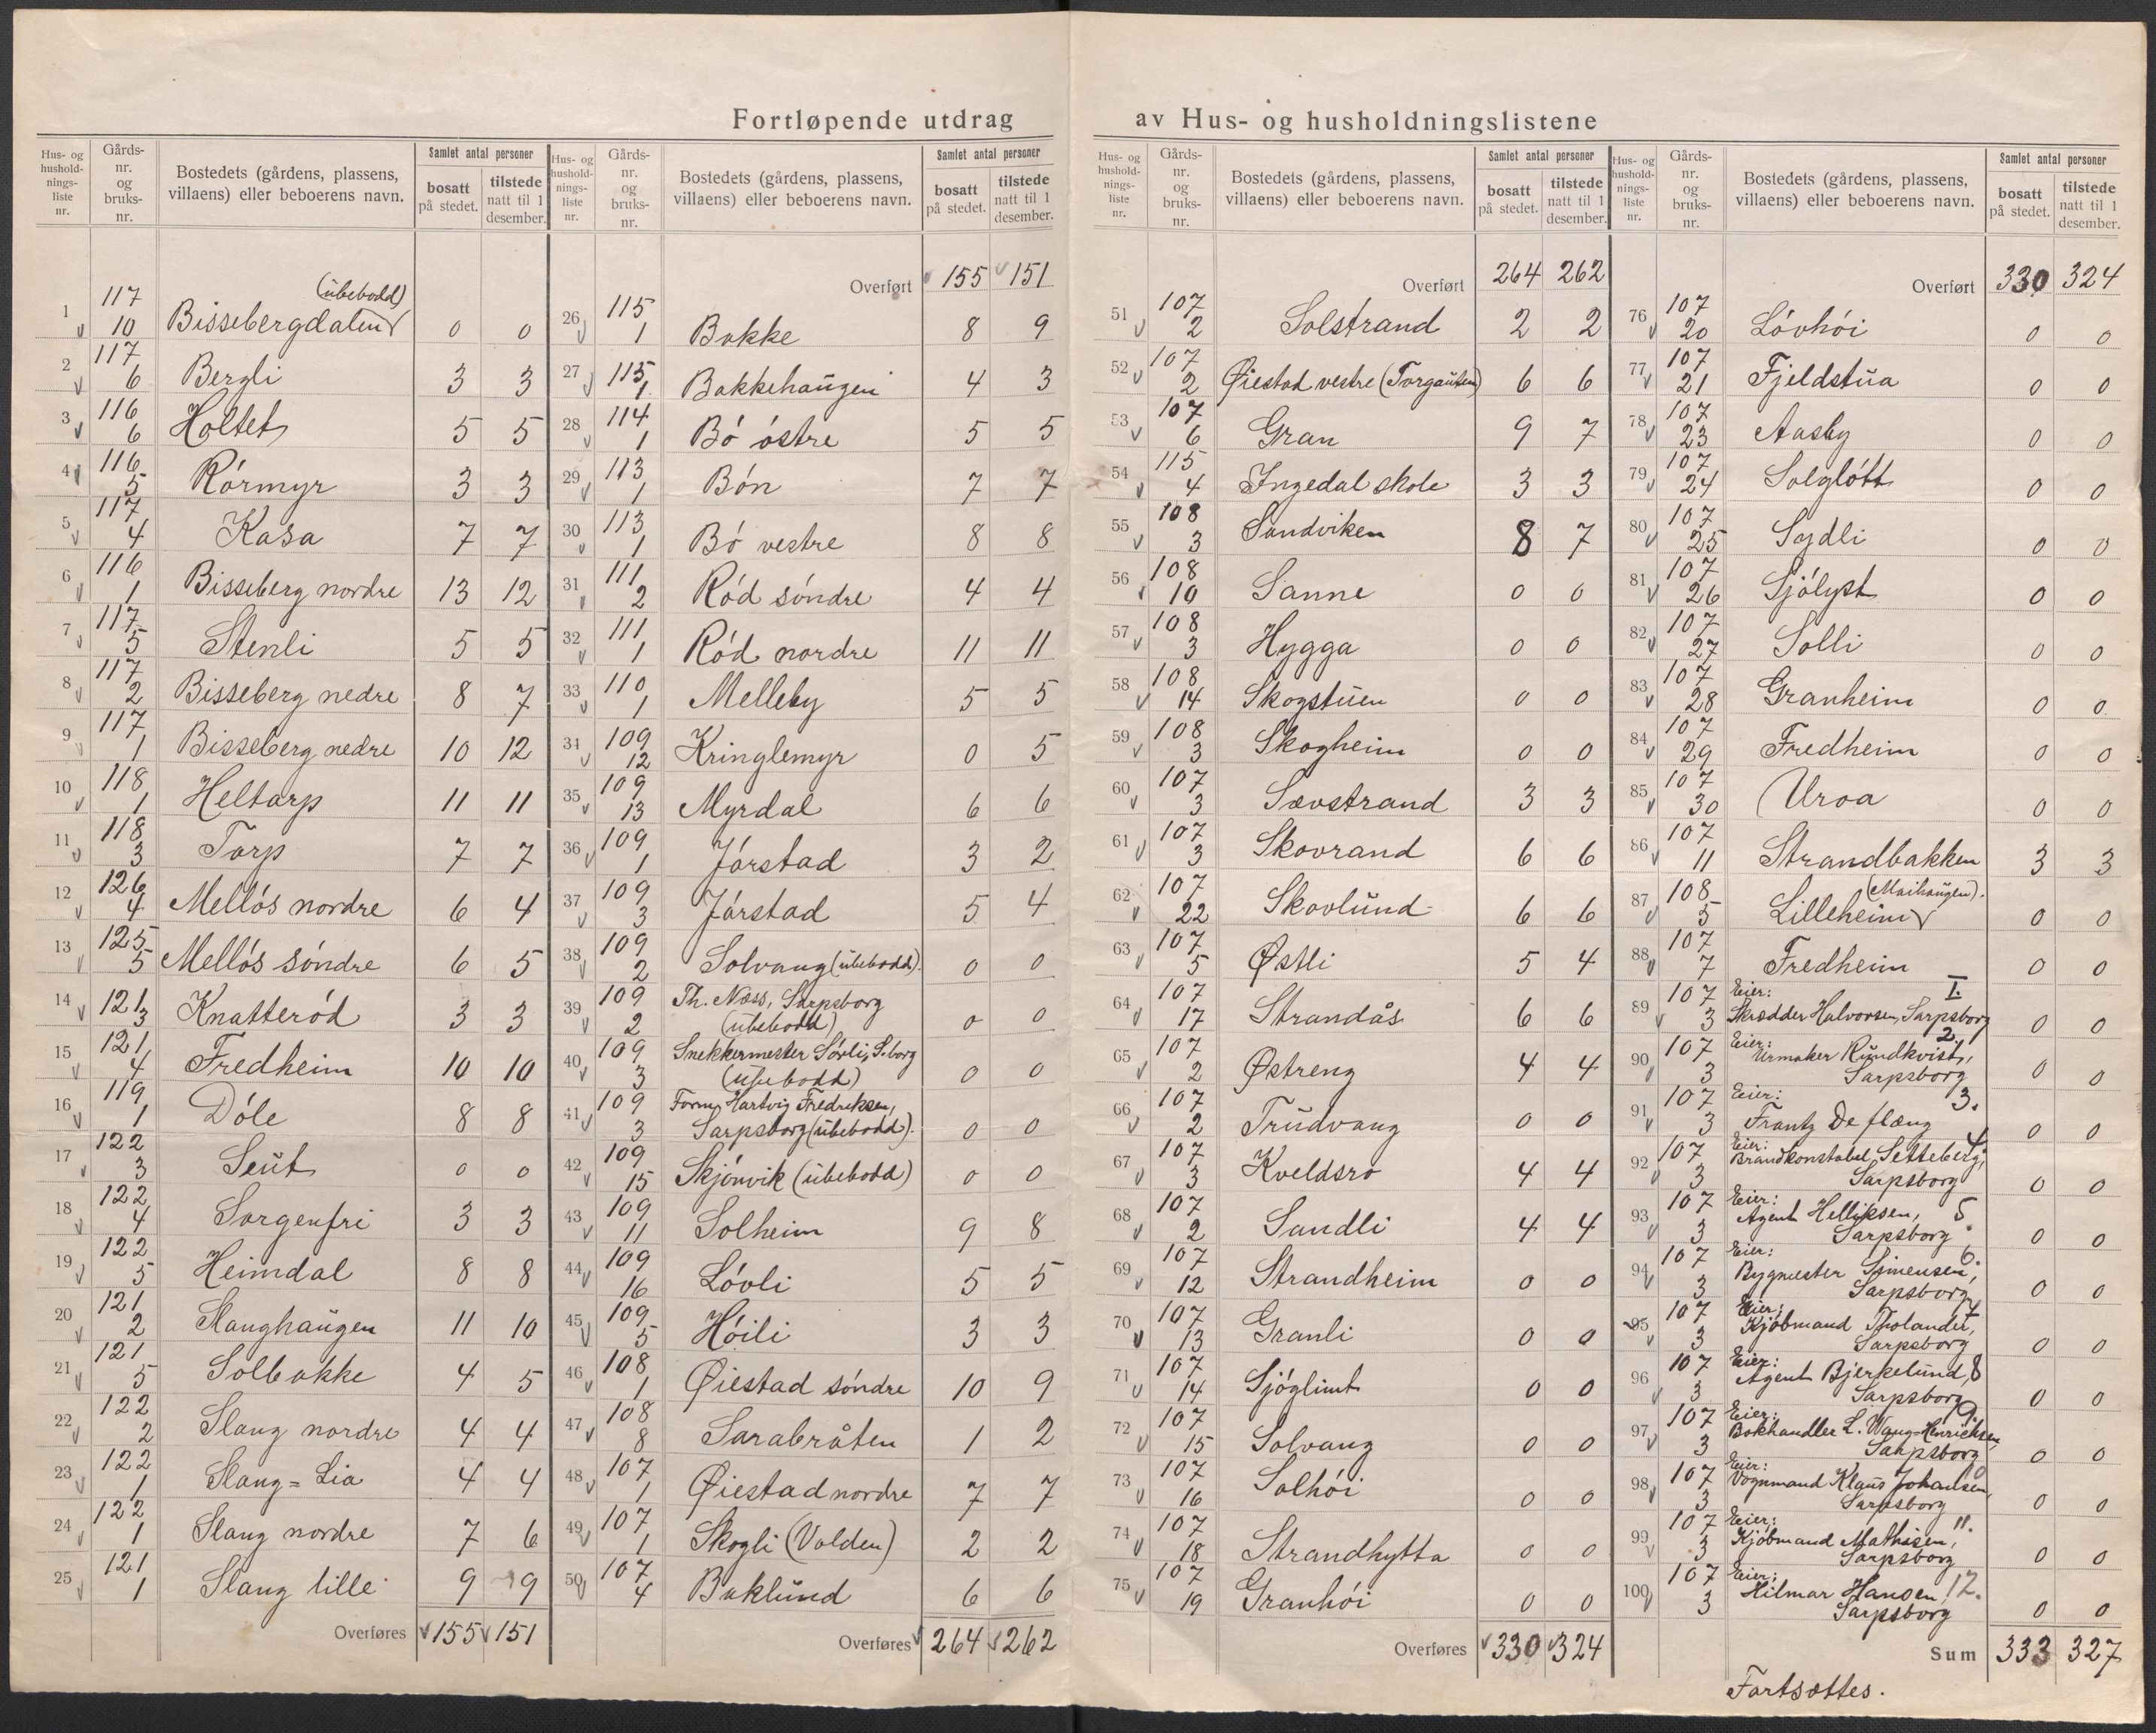 Fortløpende utdrag av Hus- og husholdningslistene
Hus- og hushold-nings-liste nr. Gårds-nr. og bruks-nr. Bostedets (gårdens, plassens, villaens) eller beboerens navn. Samlet antal personer bosatt på stedet. tilstede natt til 1 desember.
1 117 10 Bissebergdalen (ubebodd) 0 0
2 117 6 Bergli 3 3
3 116 6 Holtet 5 5
4 116 5 Rórmyr 3 3
5 117 4 Kasa 7 7
6 116 1 Bisseberg nordre 13 12
7 117 5 Stenli 5 5
8 117 2 Bisseberg nedre 8 7
9 117 1 Bisseberg nedre 10 12
10 118 1 Heltorp 11 11
11 118 3 Torp 7 7
12 126 4 Mellós nordre 6 4
13 125 5 Mellós sóndre 6 5
14 121 3 Knatteród 3 3
15 121 4 Fredheim 10 10
16 119 1 Dóle 8 8
17 122 3 Seut 0 0
18 122 4 Sorgenfri 3 3
19 122 5 Heimdal 8 8
20 121 2 Slanghaugen 11 10
21 121 5 Solbakke 4 5
22 122 2 Slang nordre 4 4
23 122 1 Slang=Lia 4 4
24 122 1 Slang nordre 7 6
25 121 1 Slang lille 9 9
Overføres 155 151
Hus- og hushold-nings-liste nr. Gårds-nr. og bruks-nr. Bostedets (gårdens, plassens, villaens) eller beboerens navn. Samlet antal personer bosatt på stedet. tilstede natt til 1 desember.
Overført 155 151
26 115 1 Bakke 8 9
27 115 1 Bakkehaugen 4 3
28 114 1 Bó óstre 5 5
29 113 1 Bón 7 7
30 113 1 Bó vestre 8 8
31 111 2 Ród sóndre 4 4
32 111 1 Ród nordre 11 11
33 110 1 Melleby 5 5
34 109 12 Kringlemyr 0 5
35 109 13 Myrdal 6 6
36 109 1 Jórstad 3 2
37 109 3 Jórstad 5 4
38 109 2 Solvang (ubebodd). 0 0
39 109 2 Th. Næss, Sarpsborg
(ubebodd) 0 0
40 109 3 Snekkermester Sørli, S.borg
(ubebodd) 0 0
41 109 3 Form. Hartvig Fredriksen,
Sarpsborg (ubebodd). 0 0
42 109 15 Skjónvik (ubebodd) 0 0
43 109 11 Solheim 9 8
44 109 16 Lóvli 5 5
45 109 5 Hóili 3 3
46 108 1 Øiestad sóndre 10 9
47 108 8 Sarabråten 1 2
48 107 1 Øiestad nordre 7 7
49 107 1 Skogli (Volden) 2 2
50 107 4 Baklund 6 6
Overføres 264 262
Hus- og hushold-nings-liste nr. Gårds-nr. og bruks-nr. Bostedets (gårdens, plassens, villaens) eller beboerens navn. Samlet antal personer bosatt på stedet. tilstede natt til 1 desember.
Overført 264 262
51 107 2 Solstrand 2 2
52 107 2 Øiestad vestre (Torgauten) 6 6
53 107 6 Gran 9 7
54 115 4 Ingedal skole 3 3
55 108 3 Sandviken 8 7
56 108 10 Sanne 0 0
57 108 3 Hygga 0 0
58 108 14 Skogstuen 0 0
59 108 3 Skogheim 0 0
60 107 3 Sævstrand 3 3
61 107 3 Skovrand 6 6
62 107 22 Skovlund 6 6
63 107 5 Østli 5 4
64 107 17 Strandås 6 6
65 107 2 Østreng 4 4
66 107 2 Trudvang 0 0
67 107 3 Kveldsro 4 4
68 107 2 Sandli 4 4
69 107 12 Strandheim 0 0
70 107 13 Granli 0 0
71 107 14 Sjóglimt 0 0
72 107 15 Solvang 0 0
73 107 16 Solhói 0 0
74 107 18 Strandhytta 0 0
75 107 19 Granhói 0 0
Overføres 330 324
Hus- og hushold-nings-liste nr. Gårds-nr. og bruks-nr. Bostedets (gårdens, plassens, villaens) eller beboerens navn. Samlet antal personer bosatt på stedet. tilstede natt til 1 desember.
Overført 330 324
76 107 20 Lóvhói 0 0
77 107 21 Fjeldstua 0 0
78 107 23 Aasby 0 0
79 107 24 Solglótt 0 0
80 107 25 Sydli 0 0
81 107 26 Sjólyst 0 0
82 107 27 Solli 0 0
83 107 28 Granheim 0 0
84 107 29 Fredheim 0 0
85 107 30 Uroa 0 0
86 107 11 Strandbakken 3 3
87 108 5 Lilleheim (Maihaugen). 0 0
88 107 7 Fredheim 0 0
89 107 3 Eier: I.
Skrædder Halvorsen, Sarpsborg 0 0
90 107 3 Eier: 2.
Urmaker Rundkvist,
Sarpsborg 0 0
91 107 3 Eier: 3.
Frantz De flæng 0 0
92 107 3 Eier: 4
Brandkonstabel Setteberg,
Sarpsborg 0 0
93 107 3 Eier: 5.
Agent Helliksen,
Sarpsborg 0 0
94 107 3 Eier: 6.
Bygmester Simensen,
Sarpsborg 0 0
95 107 3 Eier: 7
Kjóbmand Tholander,
Sarpsborg 0 0
96 107 3 Eier: 8
Agent Bjerkelund,
Sarpsborg 0 0
97 107 3 Eier: 9.
Bokhandler L. Wang-Henrichsen,
Sarpsborg 0 0
98 107 3 Eier:
Vognmand Klaus Johansen,
Sarpsborg 0 0
99 107 3 Eier: 11.
Kjóbmand Mathisen,
Sarpsborg 0 0
100 107 3 Eier: 12.
Hilmar Hansen
Sarpsborg 0 0
Sum 333 327
Fortsættes.